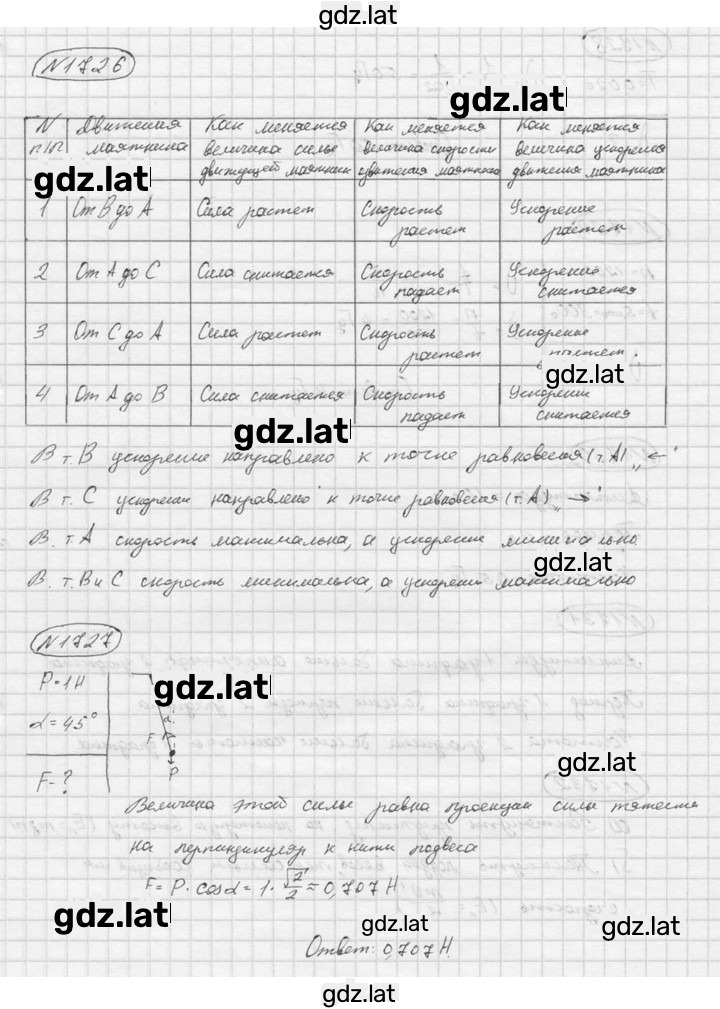 gdz.lat
N1726
gdz.lat
N п/п | Движения маятника | Как меняется величина силы движущей маятник | Как меняется величина скорости движения маятника | Как меняется величина ускорения движения маятника
gdz.lat
1 | От В до А | Сила растет | Скорость растет | Ускорение растет
2 | От А до С | Сила снижается | Скорость падает | Ускорение снижается
3 | От С до А | Сила растет | Скорость растет | Ускорение
gdz.lat
4 | От А до В | Сила снижается | Скорость падает | Ускорение снижается
gdz.lat
В т. В ускорение направлено к точке равновесия (т. А) „←“
В т. С ускорение направлено к точке равновесия (т. А) „→“
В. т. А скорость максимальна, а ускорение минимально
gdz.lat
В. т. В и С скорость минимальна, а ускорение максимально
N1727
P=1Н
gdz.lat
α=45°
α
F
P
F-?
gdz.lat
Величина этой силы равна проекции силы тяжести
на перпендикуляр к нити подвеса
F=P·cosα=1·√2/2≈0,707Н
gdz.lat
gdz.lat
gdz.lat
Ответ: 0,707Н.
gdz.lat